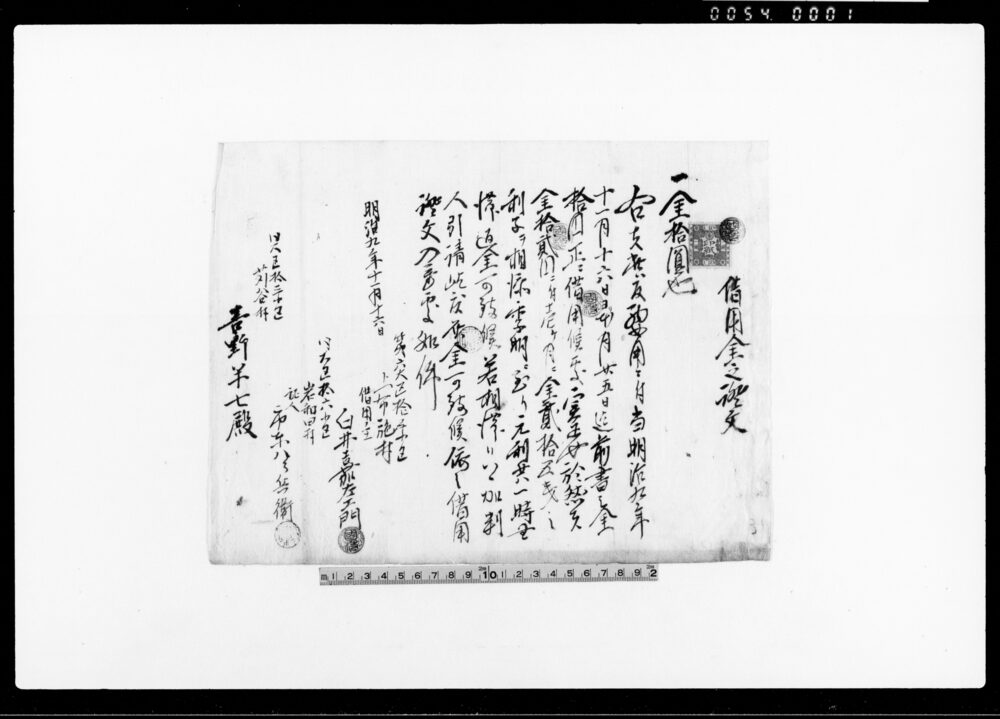 0054 0001
借用金之證文
一金拾圓也
右者拙者要用ニ付当明治九年
十一月十六日ゟ 月廿五日迠前書之金
拾円正ニ借用候処実正也 然ル
金拾貳円ニ付壱ヶ月ニ金貳拾五銭之
利子ヲ相添 ニ至リ元利共一時
済返金可致候若相滞リ候ハヽ加判
人引請 返金可致候依之借用
證文 如件
明治九年十一月十六日
第六大区拾 小区
上布施村
借用主
臼井嘉左エ門
同大区拾六小区
岩和田村
証人
市東八兵衛
同大区拾 小区
苅谷村
吉野半七殿
m 1 2 3 4 5 6 7 8 9 10 1 2 3 4 5 6 7 8 9 2